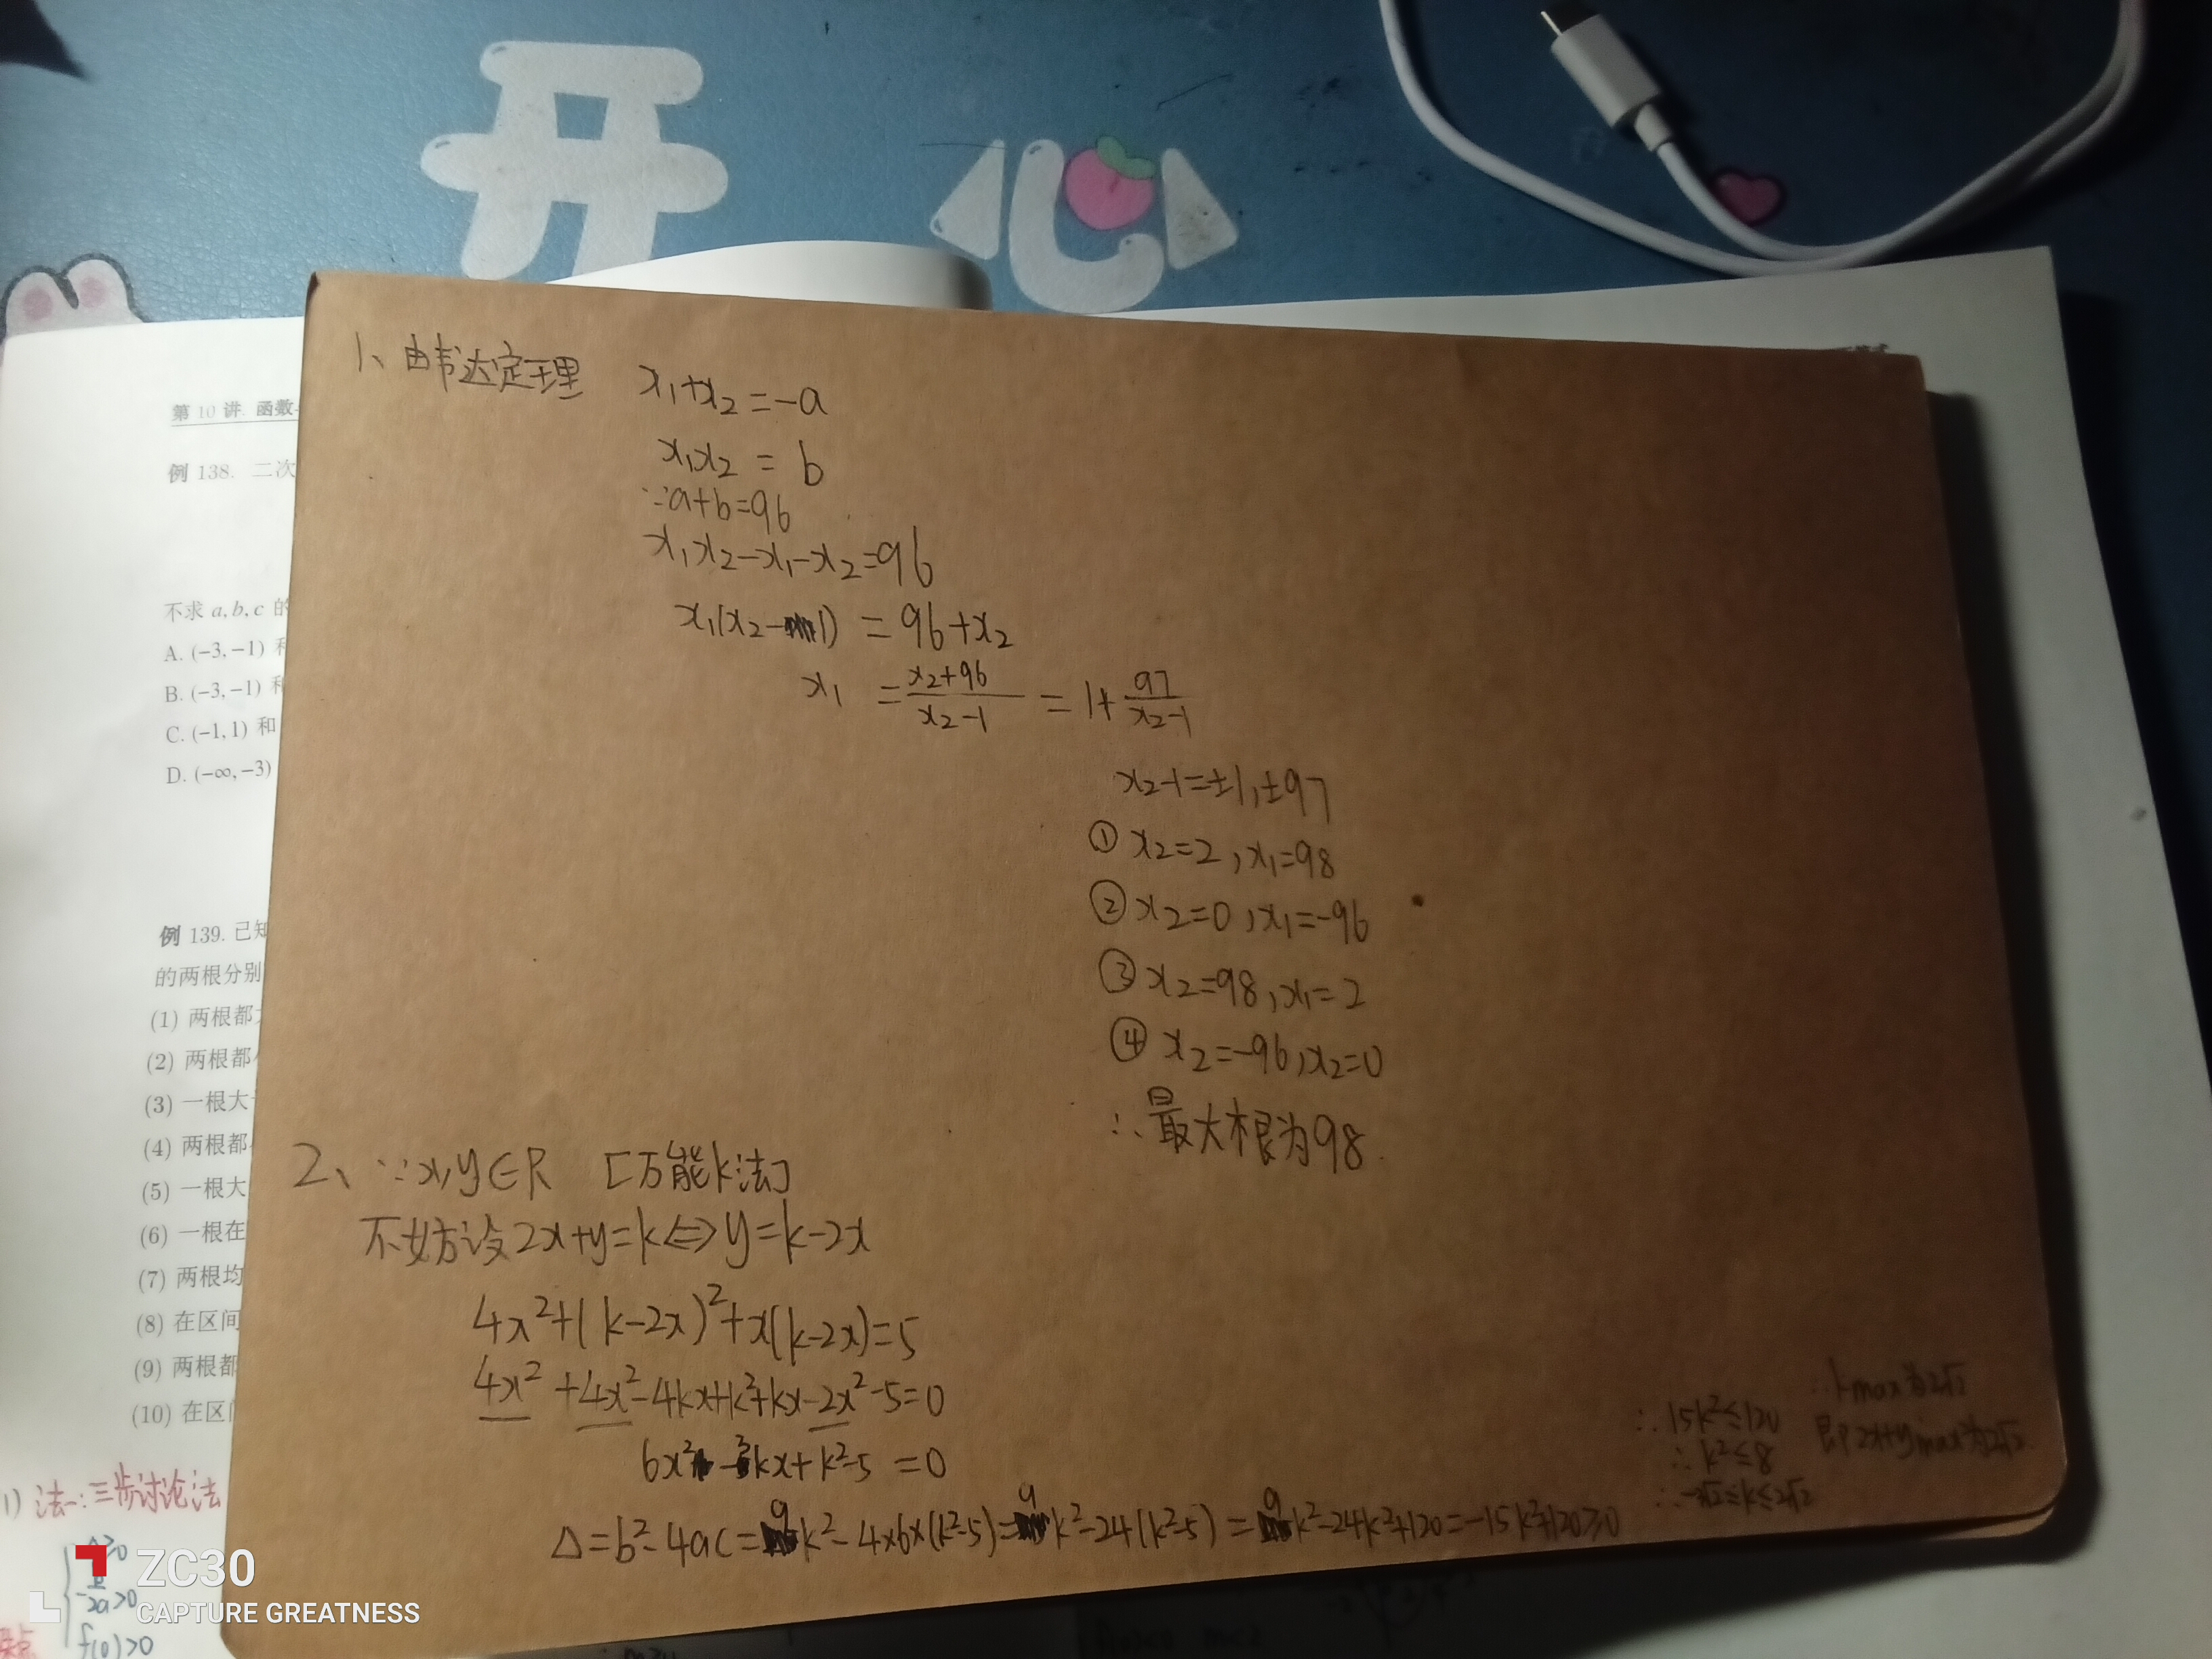 开心
第 10 讲. 函数
例 138. 二次
不求 a, b, c 的
A. (-3, -1) 和
B. (-3, -1) 和
C. (-1, 1) 和
D. (-∞, -3)
例 139. 已知
的两根分别
(1) 两根都
(2) 两根都
(3) 一根大
(4) 两根都
(5) 一根大
(6) 一根在
(7) 两根均
(8) 在区间
(9) 两根都
(10) 在区
1) 法一:三步讨论法
Δ≥0
-b/2a>0
f(0)>0
1、由韦达定理 x₁+x₂=-a
x₁x₂=b
∵a+b=96
x₁x₂-x₁-x₂=96
x₁(x₂-1)=96+x₂
x₁=(x₂+96)/(x₂-1)=1+97/(x₂-1)
x₂-1=±1,±97
① x₂=2,x₁=98
② x₂=0,x₁=-96
③ x₂=98,x₁=2
④ x₂=-96,x₂=0
∴最大根为98.
2、∵x,y∈R [万能k法]
不妨设2x+y=k⇔y=k-2x
4x²+(k-2x)²+x(k-2x)=5
4x²+4x²-4kx+k²+kx-2x²-5=0
6x²-3kx+k²-5=0
Δ=b²-4ac=9k²-4×6×(k²-5)=9k²-24(k²-5)=9k²-24k²+120=-15k²+120≥0
∴15k²≤120
∴k²≤8
∴-2√2≤k≤2√2
∴kmax为2√2
即2x+ymax为2√2
ZC30
CAPTURE GREATNESS